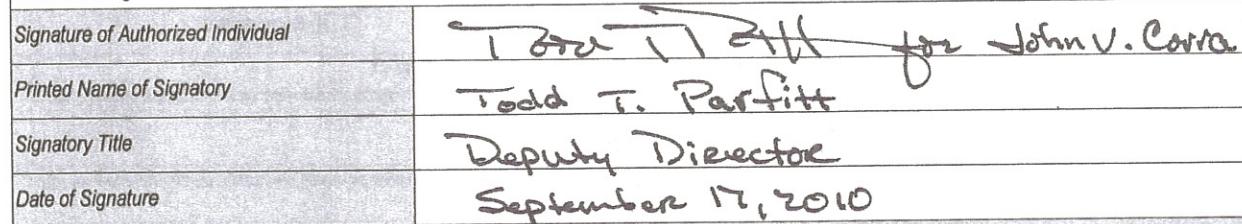 Signature of Authorized Individual Todd T. Parfitt for John V. Corra
Printed Name of Signatory Todd T. Parfitt
Signatory Title Deputy Director
Date of Signature September 17, 2010